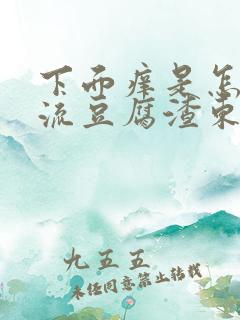 下面痒是怎
流豆腐渣东
九五五
未经同意禁止转载